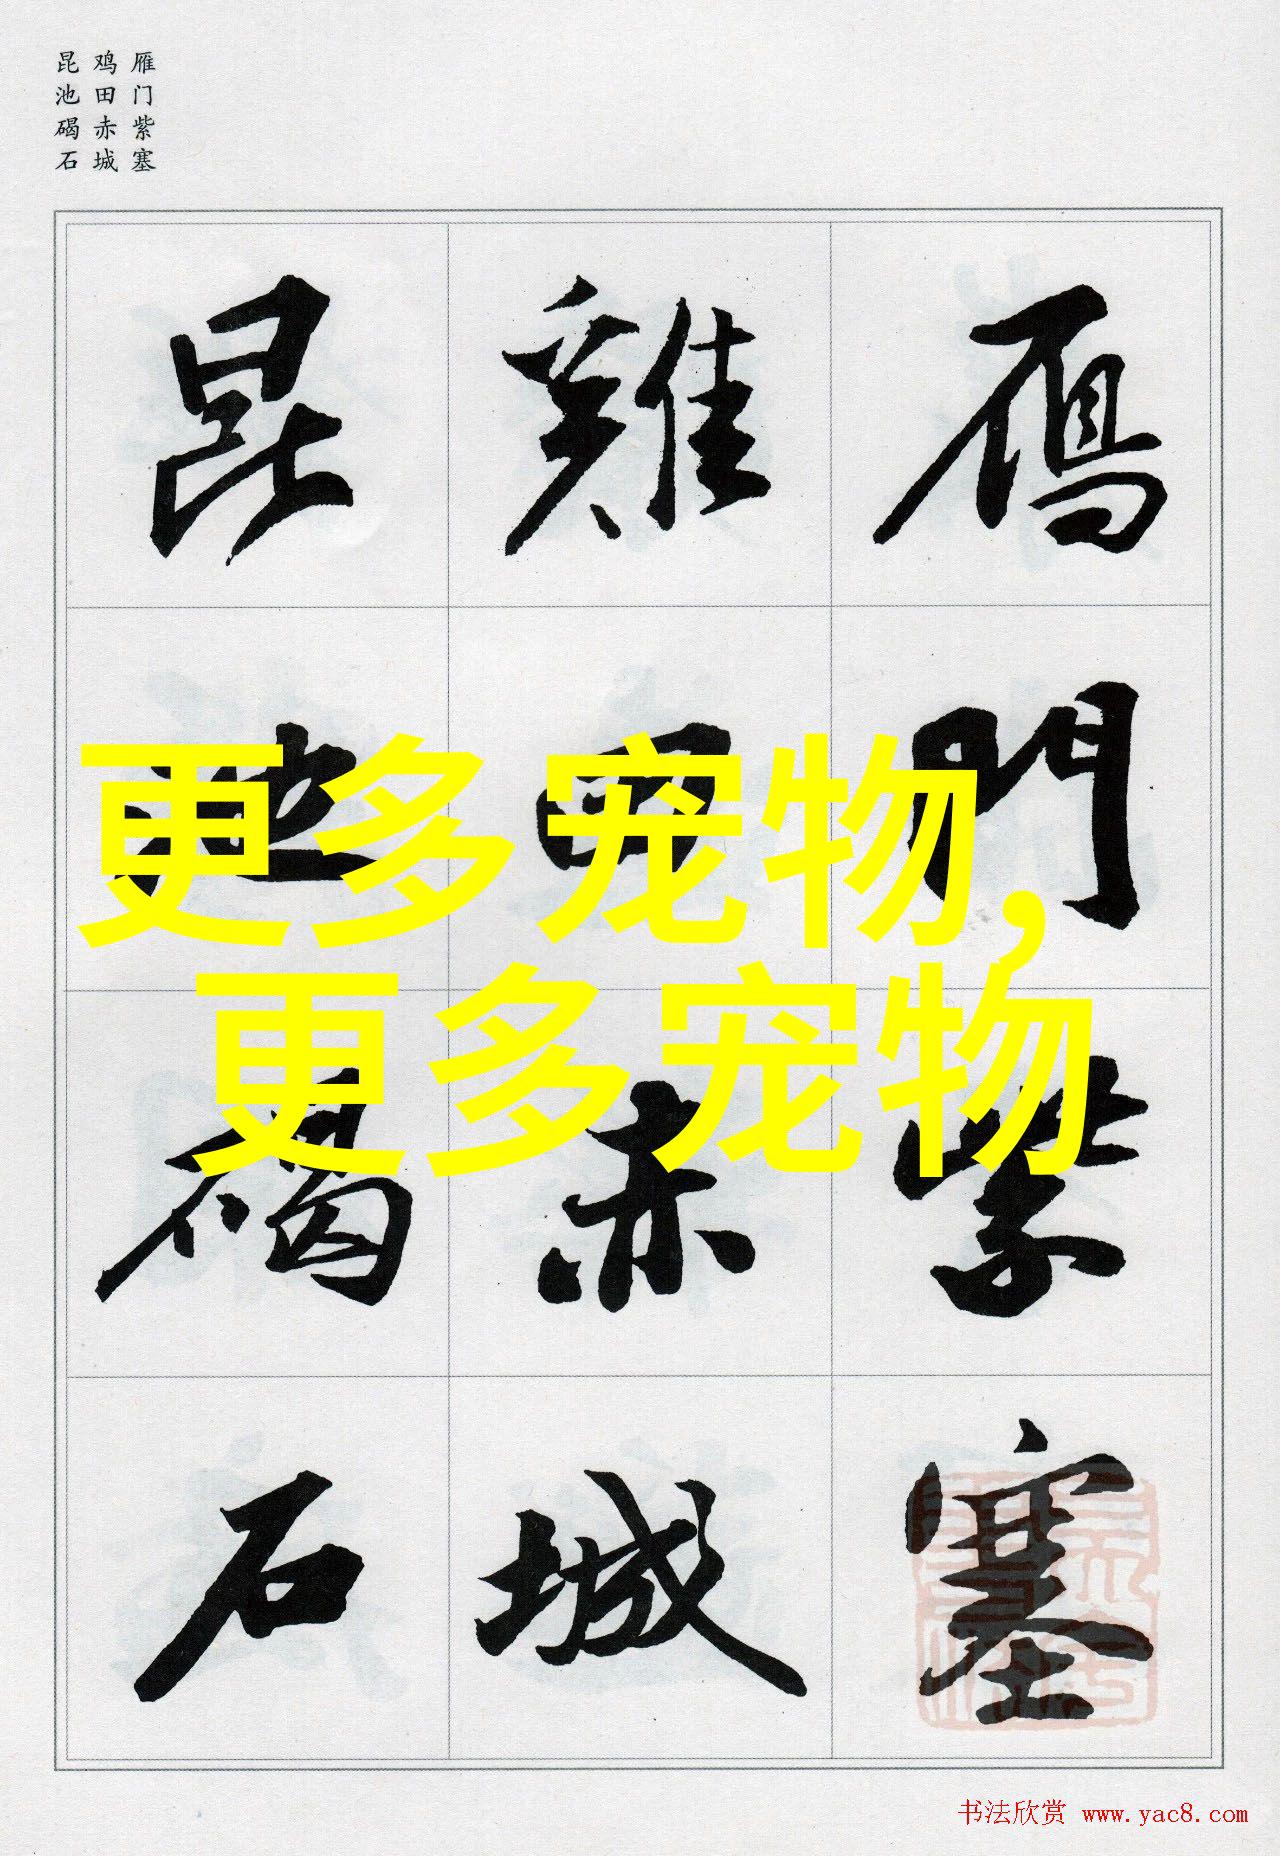 雁门紫塞
鸡田赤城
昆池碣石
鴈門紫塞
雞田赤城
昆池碣石
更多宠物,
更多宠物
书法欣赏 www.yac8.com